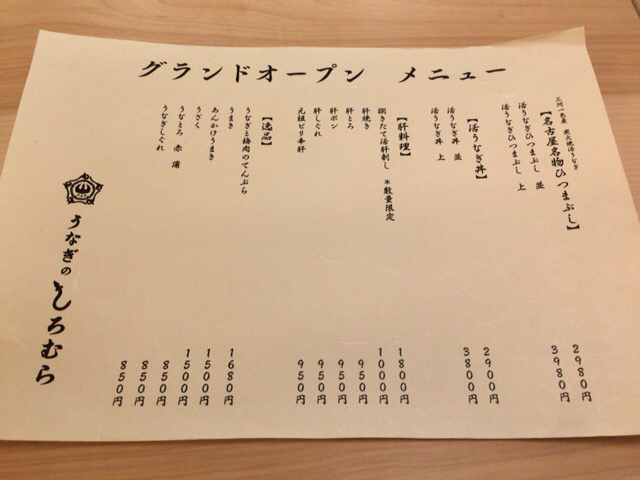 グランドオープン メニュー
三河一色産 炭火焼活うなぎ
【名古屋名物ひつまぶし】
活うなぎひつまぶし 並 2980円
活うなぎひつまぶし 上 3980円
【活うなぎ丼】
活うなぎ丼 並 2900円
活うなぎ丼 上 3800円
【肝料理】
捌きたて活肝刺し ※数量限定 1800円
肝焼き 1000円
肝とろ 950円
肝ポン 950円
肝しぐれ 950円
元祖ピリ辛肝 950円
【逸品】
うなぎと梅肉のてんぷら 1680円
うまき 1500円
あんかけうまき 1500円
うざく 850円
うなとろ 赤 850円
うなぎしぐれ 850円
うなぎの しろむら